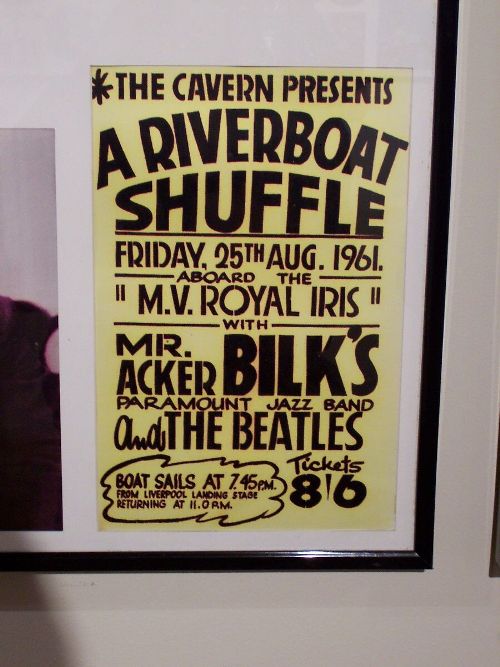 *THE CAVERN PRESENTS
A RIVERBOAT
SHUFFLE
FRIDAY, 25TH AUG. 1961.
ABOARD THE
" M.V. ROYAL IRIS "
WITH
MR.
ACKER BILK'S
PARAMOUNT JAZZ BAND
and THE BEATLES
BOAT SAILS AT 7.45 P.M.
FROM LIVERPOOL LANDING STAGE
RETURNING AT 11.0 P.M.
Tickets
8'6